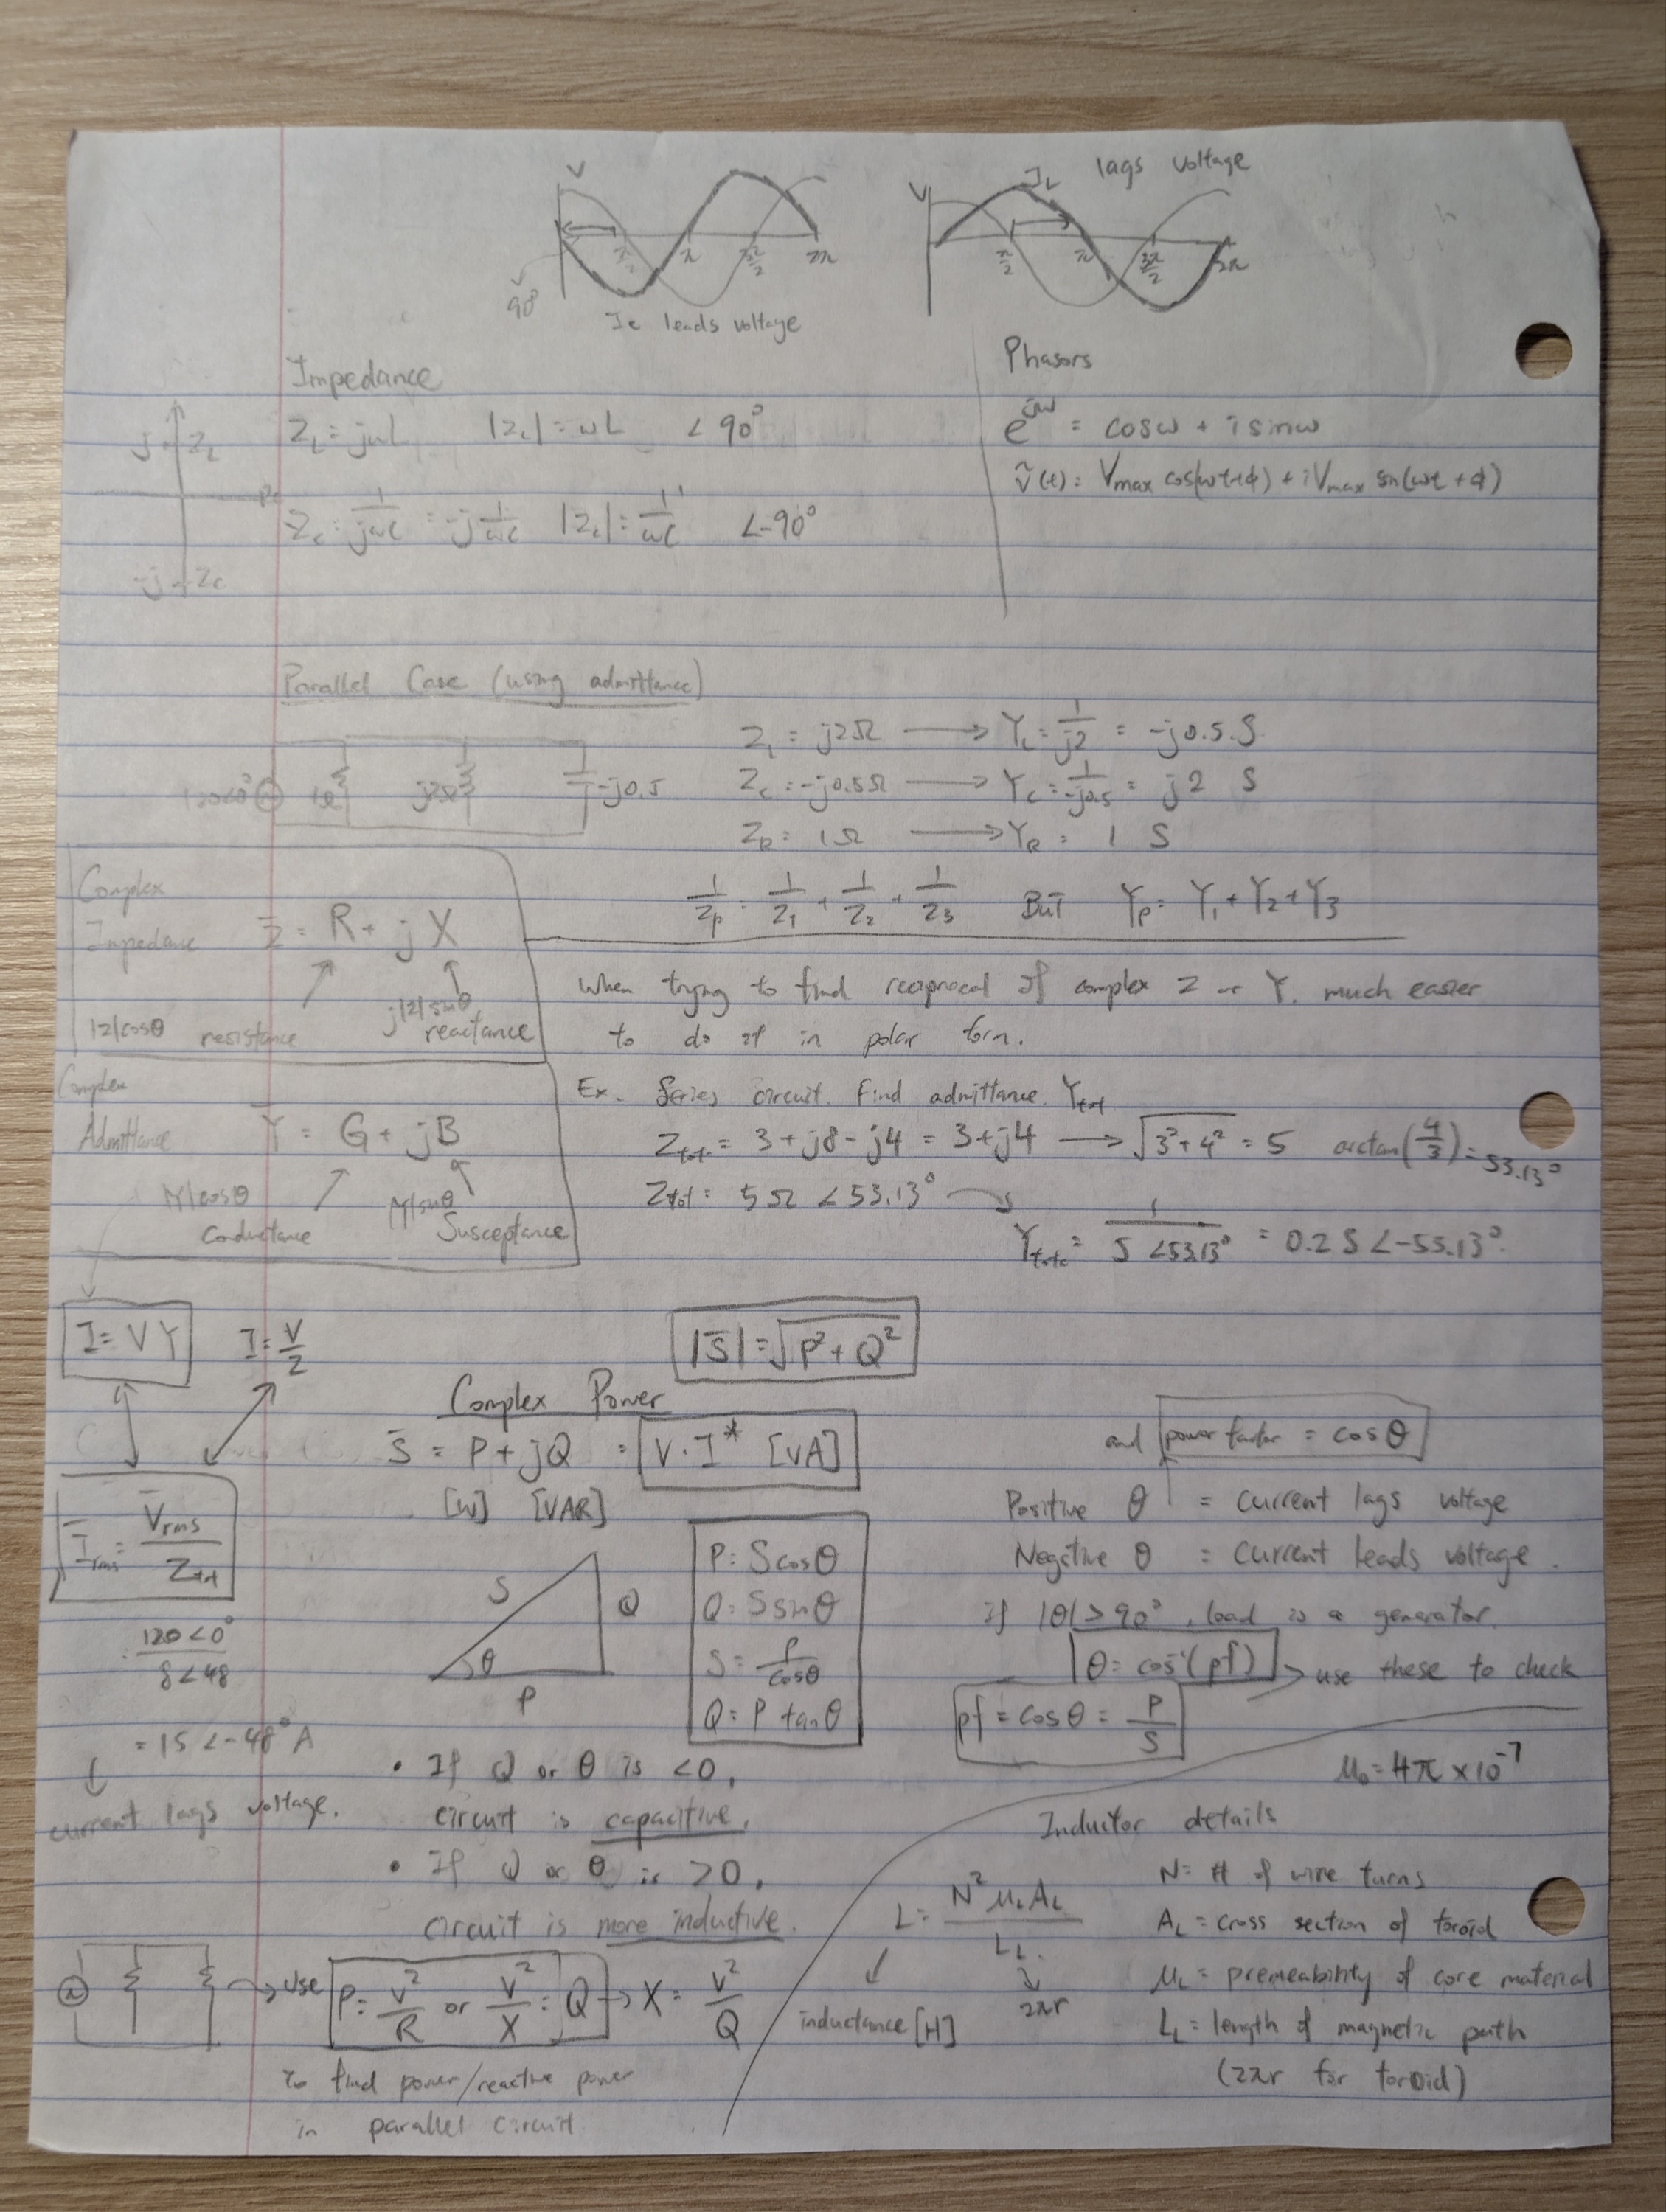 V
π/2
π
3π/2
2π
90°
Ic leads voltage
V
IL lags voltage
π/2
π
3π/2
2π
Impedance
ZL = jωL |ZL| = ωL ∠90°
Zc = 1/jωC = -j 1/ωC |Zc| = 1/ωC ∠-90°
j ZL
-j Zc
Phasors
e^iω = cosω + i sinω
ṽ(t) = Vmax cos(ωt+ϕ) + iVmax sin(ωt + ϕ)
Parallel Case (using admittance)
120∠0° 1Ω j2Ω -j0.5
ZL = j2Ω → YL = 1/j2 = -j0.5 S
Zc = -j0.5Ω → Yc = 1/-j0.5 = j2 S
ZR = 1Ω → YR = 1 S
1/Zp = 1/Z1 + 1/Z2 + 1/Z3 But Yp = Y1 + Y2 + Y3
Complex
Impedance Z = R + jX
|Z|cosθ resistance j|Z|sinθ reactance
When trying to find reciprocal of complex Z or Y, much easier
to do it in polar form.
Complex
Admittance Y = G + jB
|Y|cosθ Conductance |Y|sinθ Susceptance
Ex. Series circuit. Find admittance. Ytot
Ztot = 3 + j8 - j4 = 3 + j4 → √3²+4² = 5 arctan(4/3) = 53.13°
Ztot = 5Ω ∠53.13°
Ytot = 1/5∠53.13° = 0.2 S ∠-53.13°
I = VY I = V/Z
Irms = Vrms/Ztot
120∠0°/8∠48
= 15∠-48° A
current lags voltage.
|S| = √P²+Q²
Complex Power
S = P + jQ = V·I* [VA]
[W] [VAR]
S
Q
θ
P
P = Scosθ
Q = Ssinθ
S = P/cosθ
Q = P tanθ
and power factor = cosθ
Positive θ = current lags voltage
Negative θ = current leads voltage.
if |θ| > 90°, load is a generator.
θ = cos⁻¹(pf) → use these to check
pf = cosθ = P/S
• If Q or θ is <0,
circuit is capacitive.
• If Q or θ is >0,
circuit is more inductive.
→ use P = V²/R or V²/X = Q → X = V²/Q
to find power/reactive power
in parallel circuit.
μ₀ = 4π × 10⁻⁷
Inductor details
L = N²μLAL/LL
2πr
inductance [H]
N = # of wire turns
AL = cross section of toroid
μL = premeability of core material
LL = length of magnetic path
(2πr for toroid)